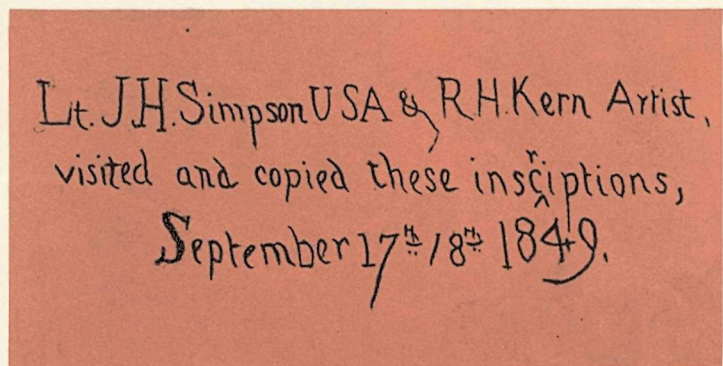 Lt. J.H. Simpson USA & R.H. Kern Artist,
visited and copied these inscriptions,
September 17th 18th 1849.